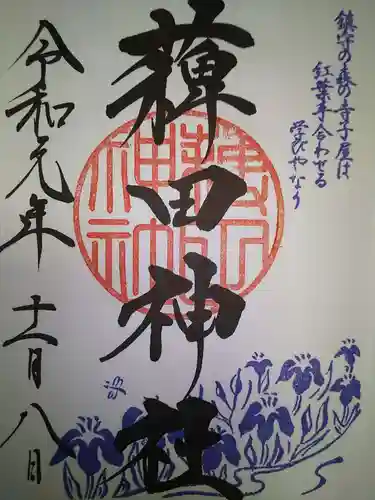 鎮守の森の寺子屋は
紅葉手合わせる
学びやなり
薭田神社
令和元年十一月八日